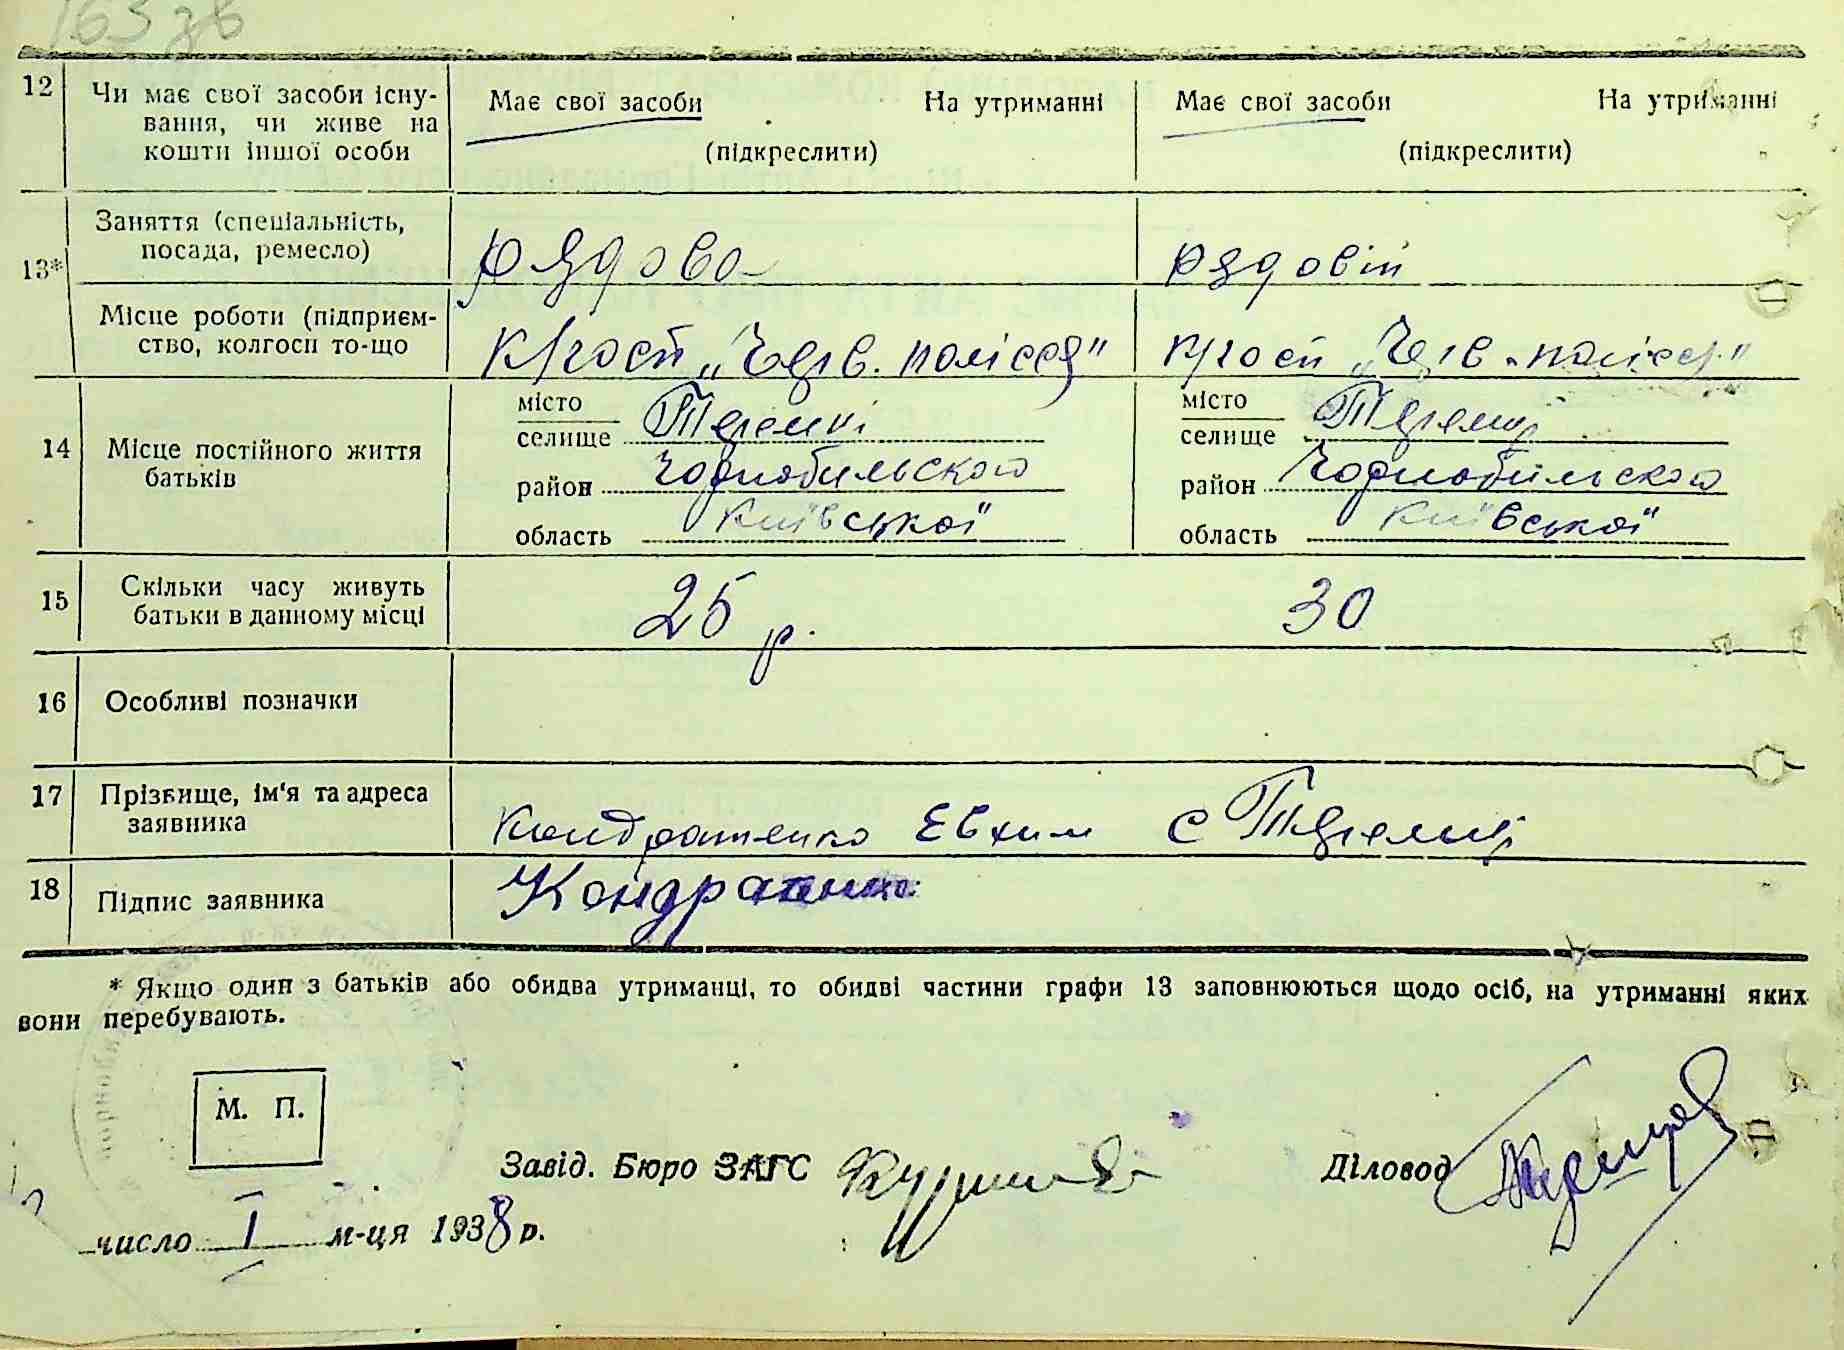 163 зв
12 Чи має свої засоби існу- Має свої засоби На утриманні Має свої засоби На утриманні
вання, чи живе на
кошти іншої особи (підкреслити) (підкреслити)
13* Заняття (спеціальність, рядова рядовій
посада, ремесло)
Місце роботи (підприєм- к/госп „Черв. полісся" к/госп „Черв. полісся"
ство, колгосп то-що
14 Місце постійного життя місто місто
батьків селище Теремці селище Теремці
район Чорнобильского район Чорнобильского
область Київської область Київської
15 Скільки часу живуть 25 р. 30
батьки в данному місці
16 Особливі позначки
17 Прізвище, ім'я та адреса
заявника Кондратенко Евхим с Теремці
18 Підпис заявника Кондратенко
* Якщо один з батьків або обидва утриманці, то обидві частини графи 13 заповнюються щодо осіб, на утриманні яких
вони перебувають.
М. П.
Завід. Бюро ЗАГС Діловод
число I м-ця 1938 р.